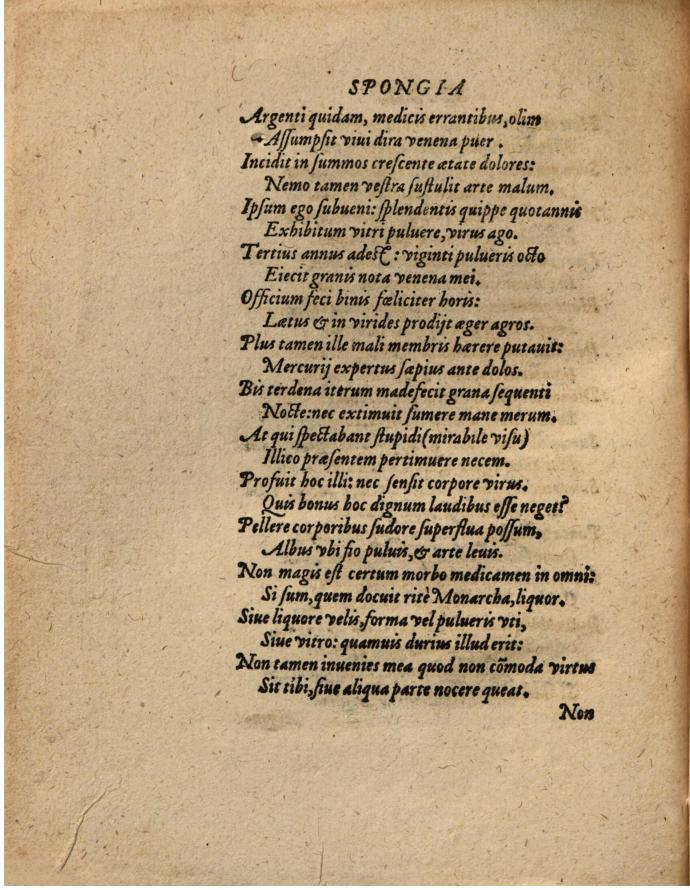 SPONGIA
Argenti quidam, medicis errantibus, olim
Aſſumpſit viui dira venena puer.
Incidit in ſummos creſcente ætate dolores:
Nemo tamen veſtra ſuſtulit arte malum.
Ipſum ego ſubueni: ſplendentis quippe quotannis
Exhibitum vitri puluere, virus ago.
Tertius annus adeſt: viginti pulueris octo
Eiecit granis nota venena mei.
Officium feci binis fœliciter horis:
Lætus & in virides prodijt æger agros.
Plus tamen ille mali membris hærere putauit:
Mercurij expertus ſæpius ante dolos.
Bis terdena iterum madefecit grana ſequenti
Nocte: nec extimuit ſumere mane merum.
At qui ſpectabant ſtupidi (mirabile viſu)
Illico præſentem pertimuere necem.
Profuit hoc illi: nec ſenſit corpore virus.
Quis bonus hoc dignum laudibus eſſe neget?
Pellere corporibus ſudore ſuperflua poſſum,
Albus vbi fio puluis, & arte leuis.
Non magis eſt certum morbo medicamen in omni:
Si ſum, quem docuit ritè Monarcha, liquor.
Siue liquore velis, forma vel pulueris vti,
Siue vitro: quamuis durius illud erit:
Non tamen inuenies mea quod non cõmoda virtus
Sit tibi, ſiue aliqua parte nocere queat.
Non